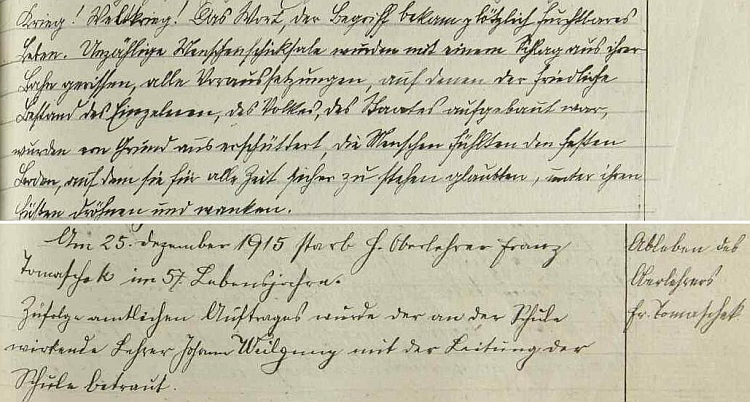 Krieg! Weltkrieg! Das Wort, der Begriff bekam plötzlich furchtbares
Leben. Unzählige Menschenschicksale wurden mit einem Schlag aus ihrer
Bahn gerissen, alle Voraussetzungen, auf denen der friedliche
Bestand des Einzelnen, des Volkes, des Staates aufgebaut war,
wurden von Grund aus erschüttert, die Menschen fühlten den festen
Boden, auf dem sie für alle Zeit sicher zu stehen glaubten, unter ihren
Füßen dröhnen und wanken.
Am 25. Dezember 1915 starb H. Oberlehrer Franz
Tomaschek im 57. Lebensjahre.
Zufolge amtlichen Auftrages wurde der an der Schule
wirkende Lehrer Johann Weilguny mit der Leitung der
Schule betraut.
Ableben des
Oberlehrers
Fr. Tomaschek